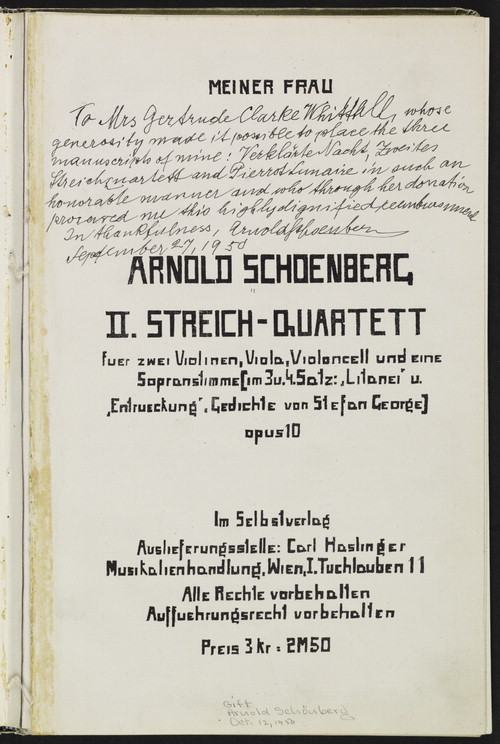 MEINER FRAU
To Mrs Gertrude Clarke Whittall, whose
generosity made it possible to place the three
manuscripts of mine: Verklärte Nacht, Zweites
Streichquartett and Pierrot Lunaire in such an
honorable manner and who through her donation
procured me this highly dignified
In thankfulness, Arnold Schoenberg
September 27, 1950
ARNOLD SCHOENBERG
II. STREICH-QUARTETT
fuer zwei Violinen, Viola, Violoncell und eine
Sopranstimme (im 3 u. 4. Satz: „Litanei" u.
„Entrueckung", Gedichte von Stefan George)
opus 10
Im Selbstverlag
Auslieferungsstelle: Carl Haslinger
Musikalienhandlung, Wien, I. Tuchlauben 11
Alle Rechte vorbehalten
Auffuehrungsrecht vorbehalten
Preis 3 kr = 2M50
Gift
Arnold Schönberg
Oct. 12, 1950